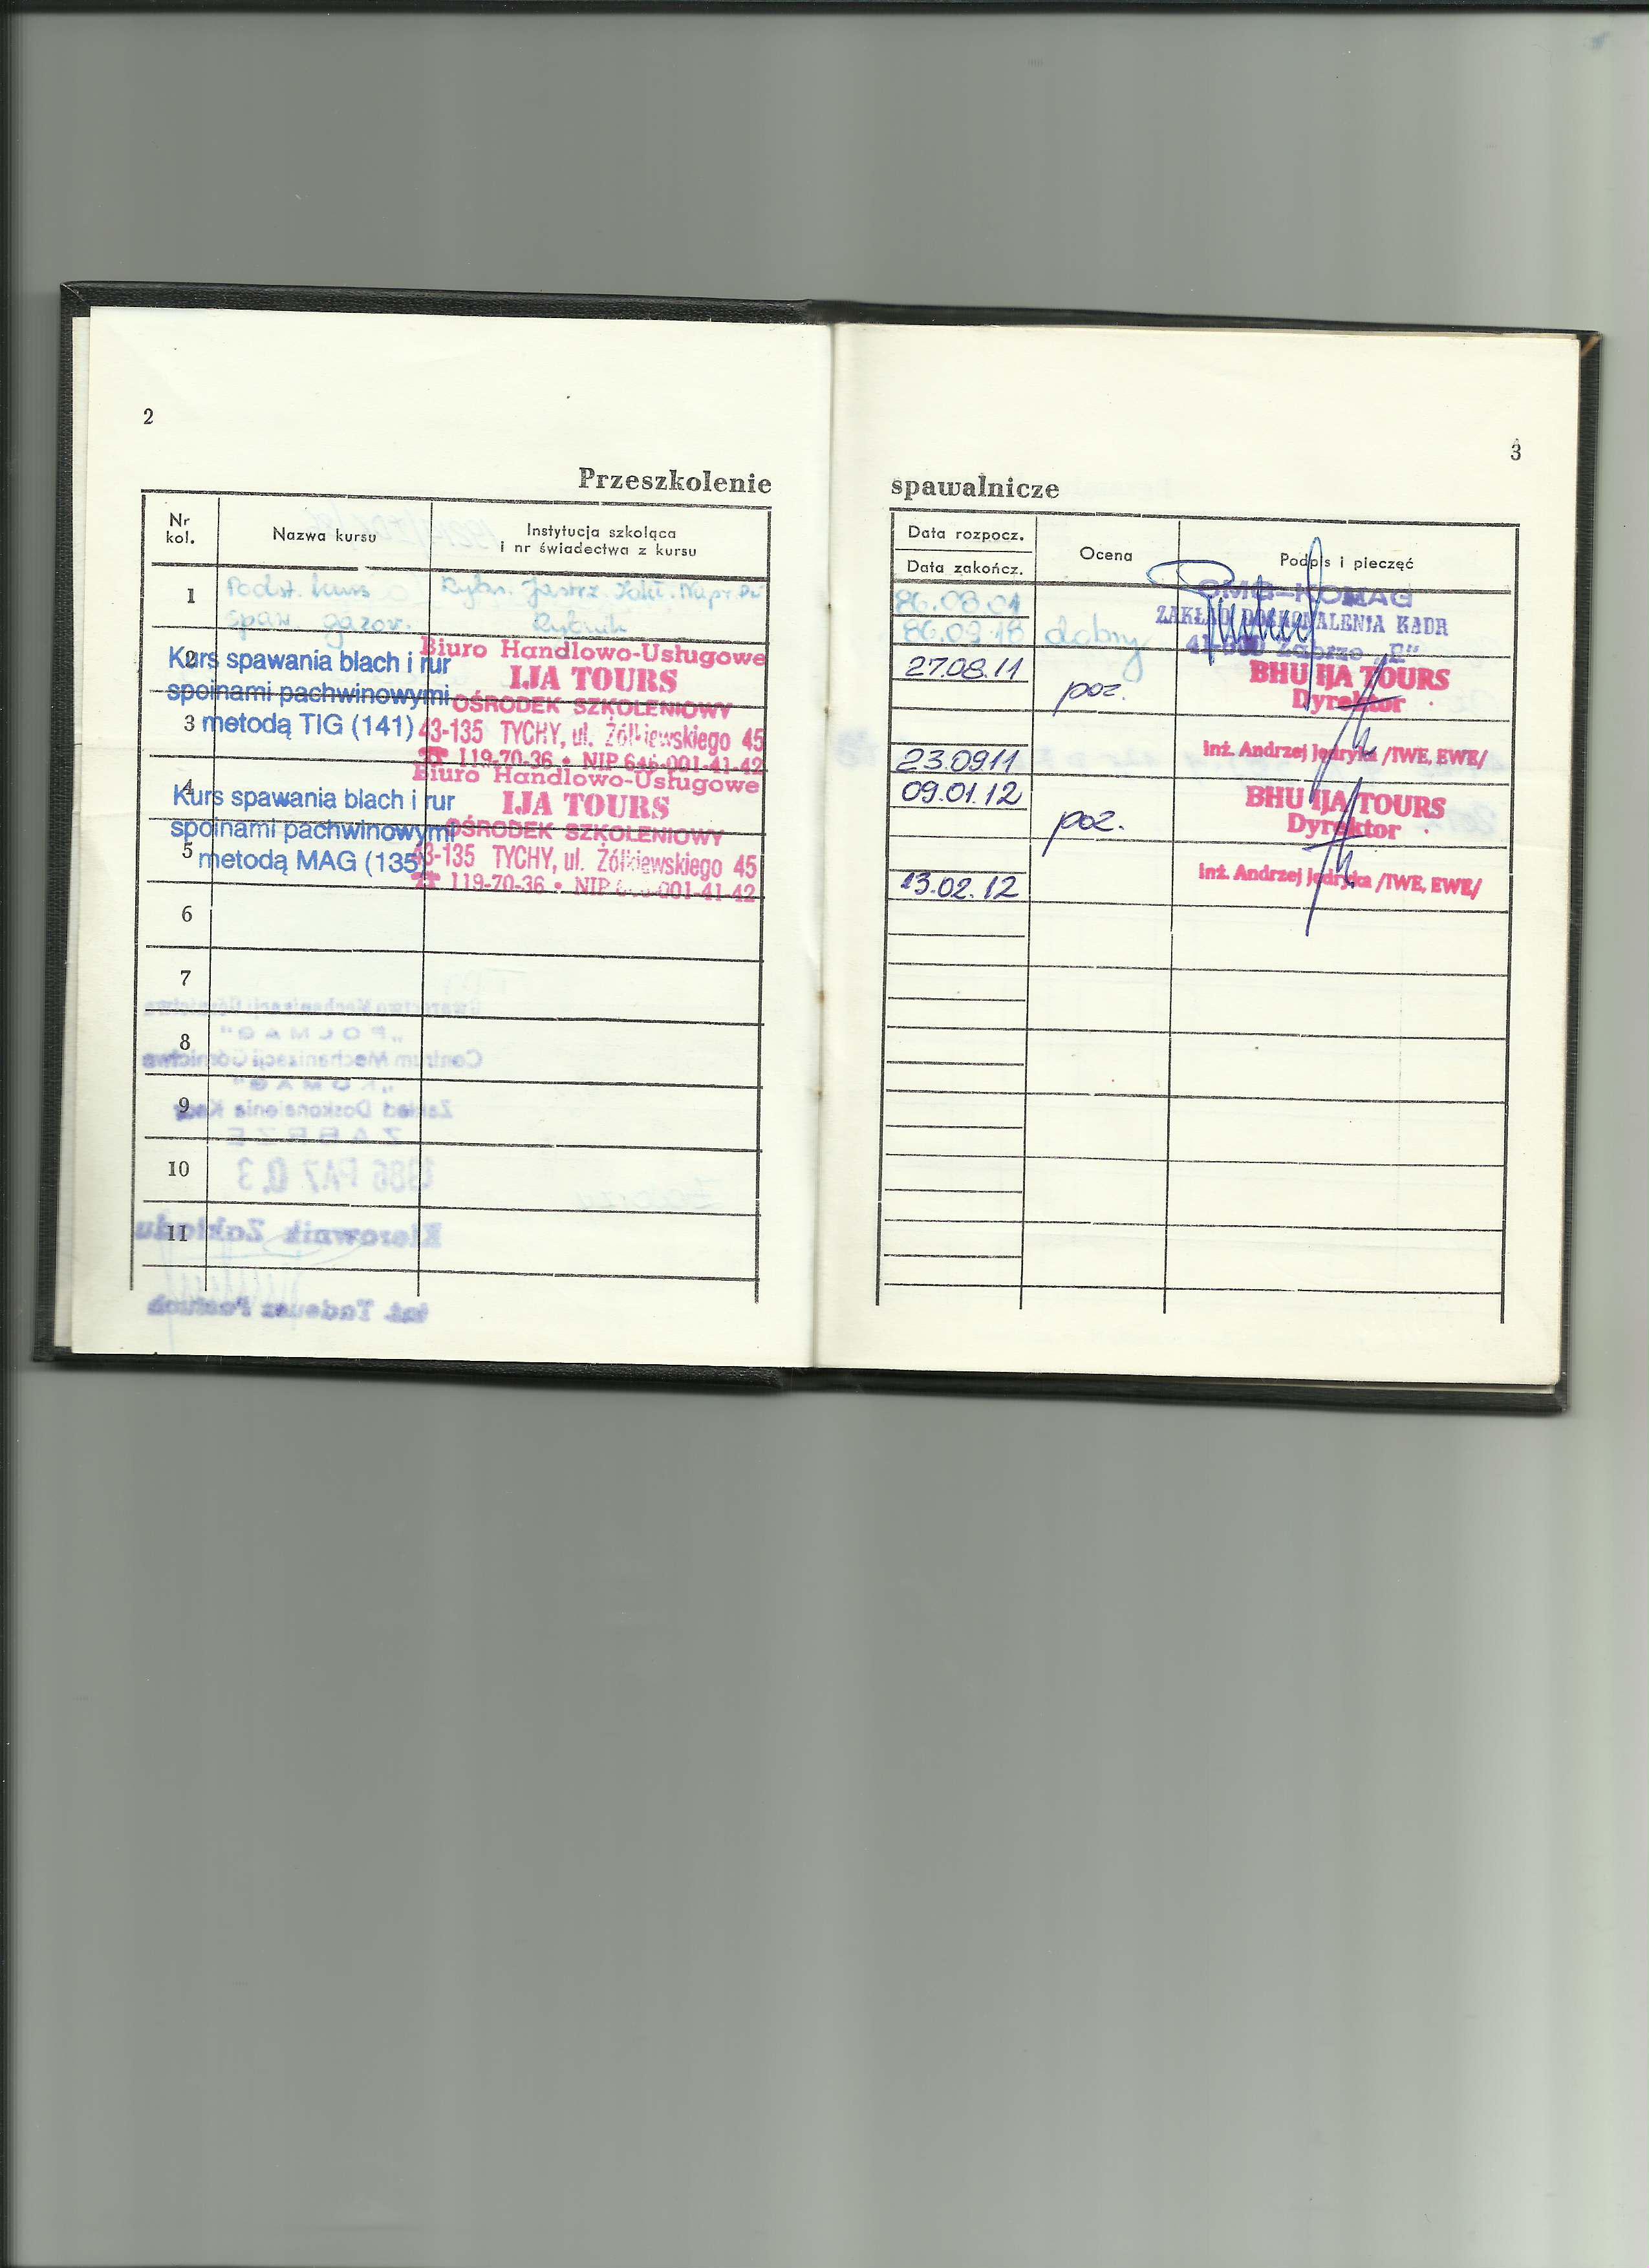 2
Przeszkolenie
Nr kol.
Nazwa kursu
Instytucja szkoląca
i nr świadectwa z kursu
1
Podst. kurs
spaw. gazow.
Rybn. Jastrz. Zakł. Napr.
Rybnik
2
Kurs spawania blach i rur
spoinami pachwinowymi
3
metodą TIG (141)
Biuro Handlowo-Usługowe
IJA TOURS
OŚRODEK SZKOLENIOWY
43-135 TYCHY, ul. Żółkiewskiego 45
☎ 119-70-36 • NIP 646-001-41-42
4
Kurs spawania blach i rur
spoinami pachwinowymi
5
metodą MAG (135)
Biuro Handlowo-Usługowe
IJA TOURS
OŚRODEK SZKOLENIOWY
43-135 TYCHY, ul. Żółkiewskiego 45
☎ 119-70-36 • NIP 646-001-41-42
6
7
8
9
10
11
3
spawalnicze
Data rozpocz.
Data zakończ.
Ocena
Podpis i pieczęć
86.08.01
86.09.18
dobry
OMG-KOMAG
ZAKŁAD DOSKONALENIA KADR
Zabrze „E"
27.08.11
poz.
23.0911
BHU IJA TOURS
Dyrektor
inż. Andrzej Jędryka /IWE, EWE/
09.01.12
poz.
13.02.12
BHU IJA TOURS
Dyrektor
inż. Andrzej Jędryka /IWE, EWE/